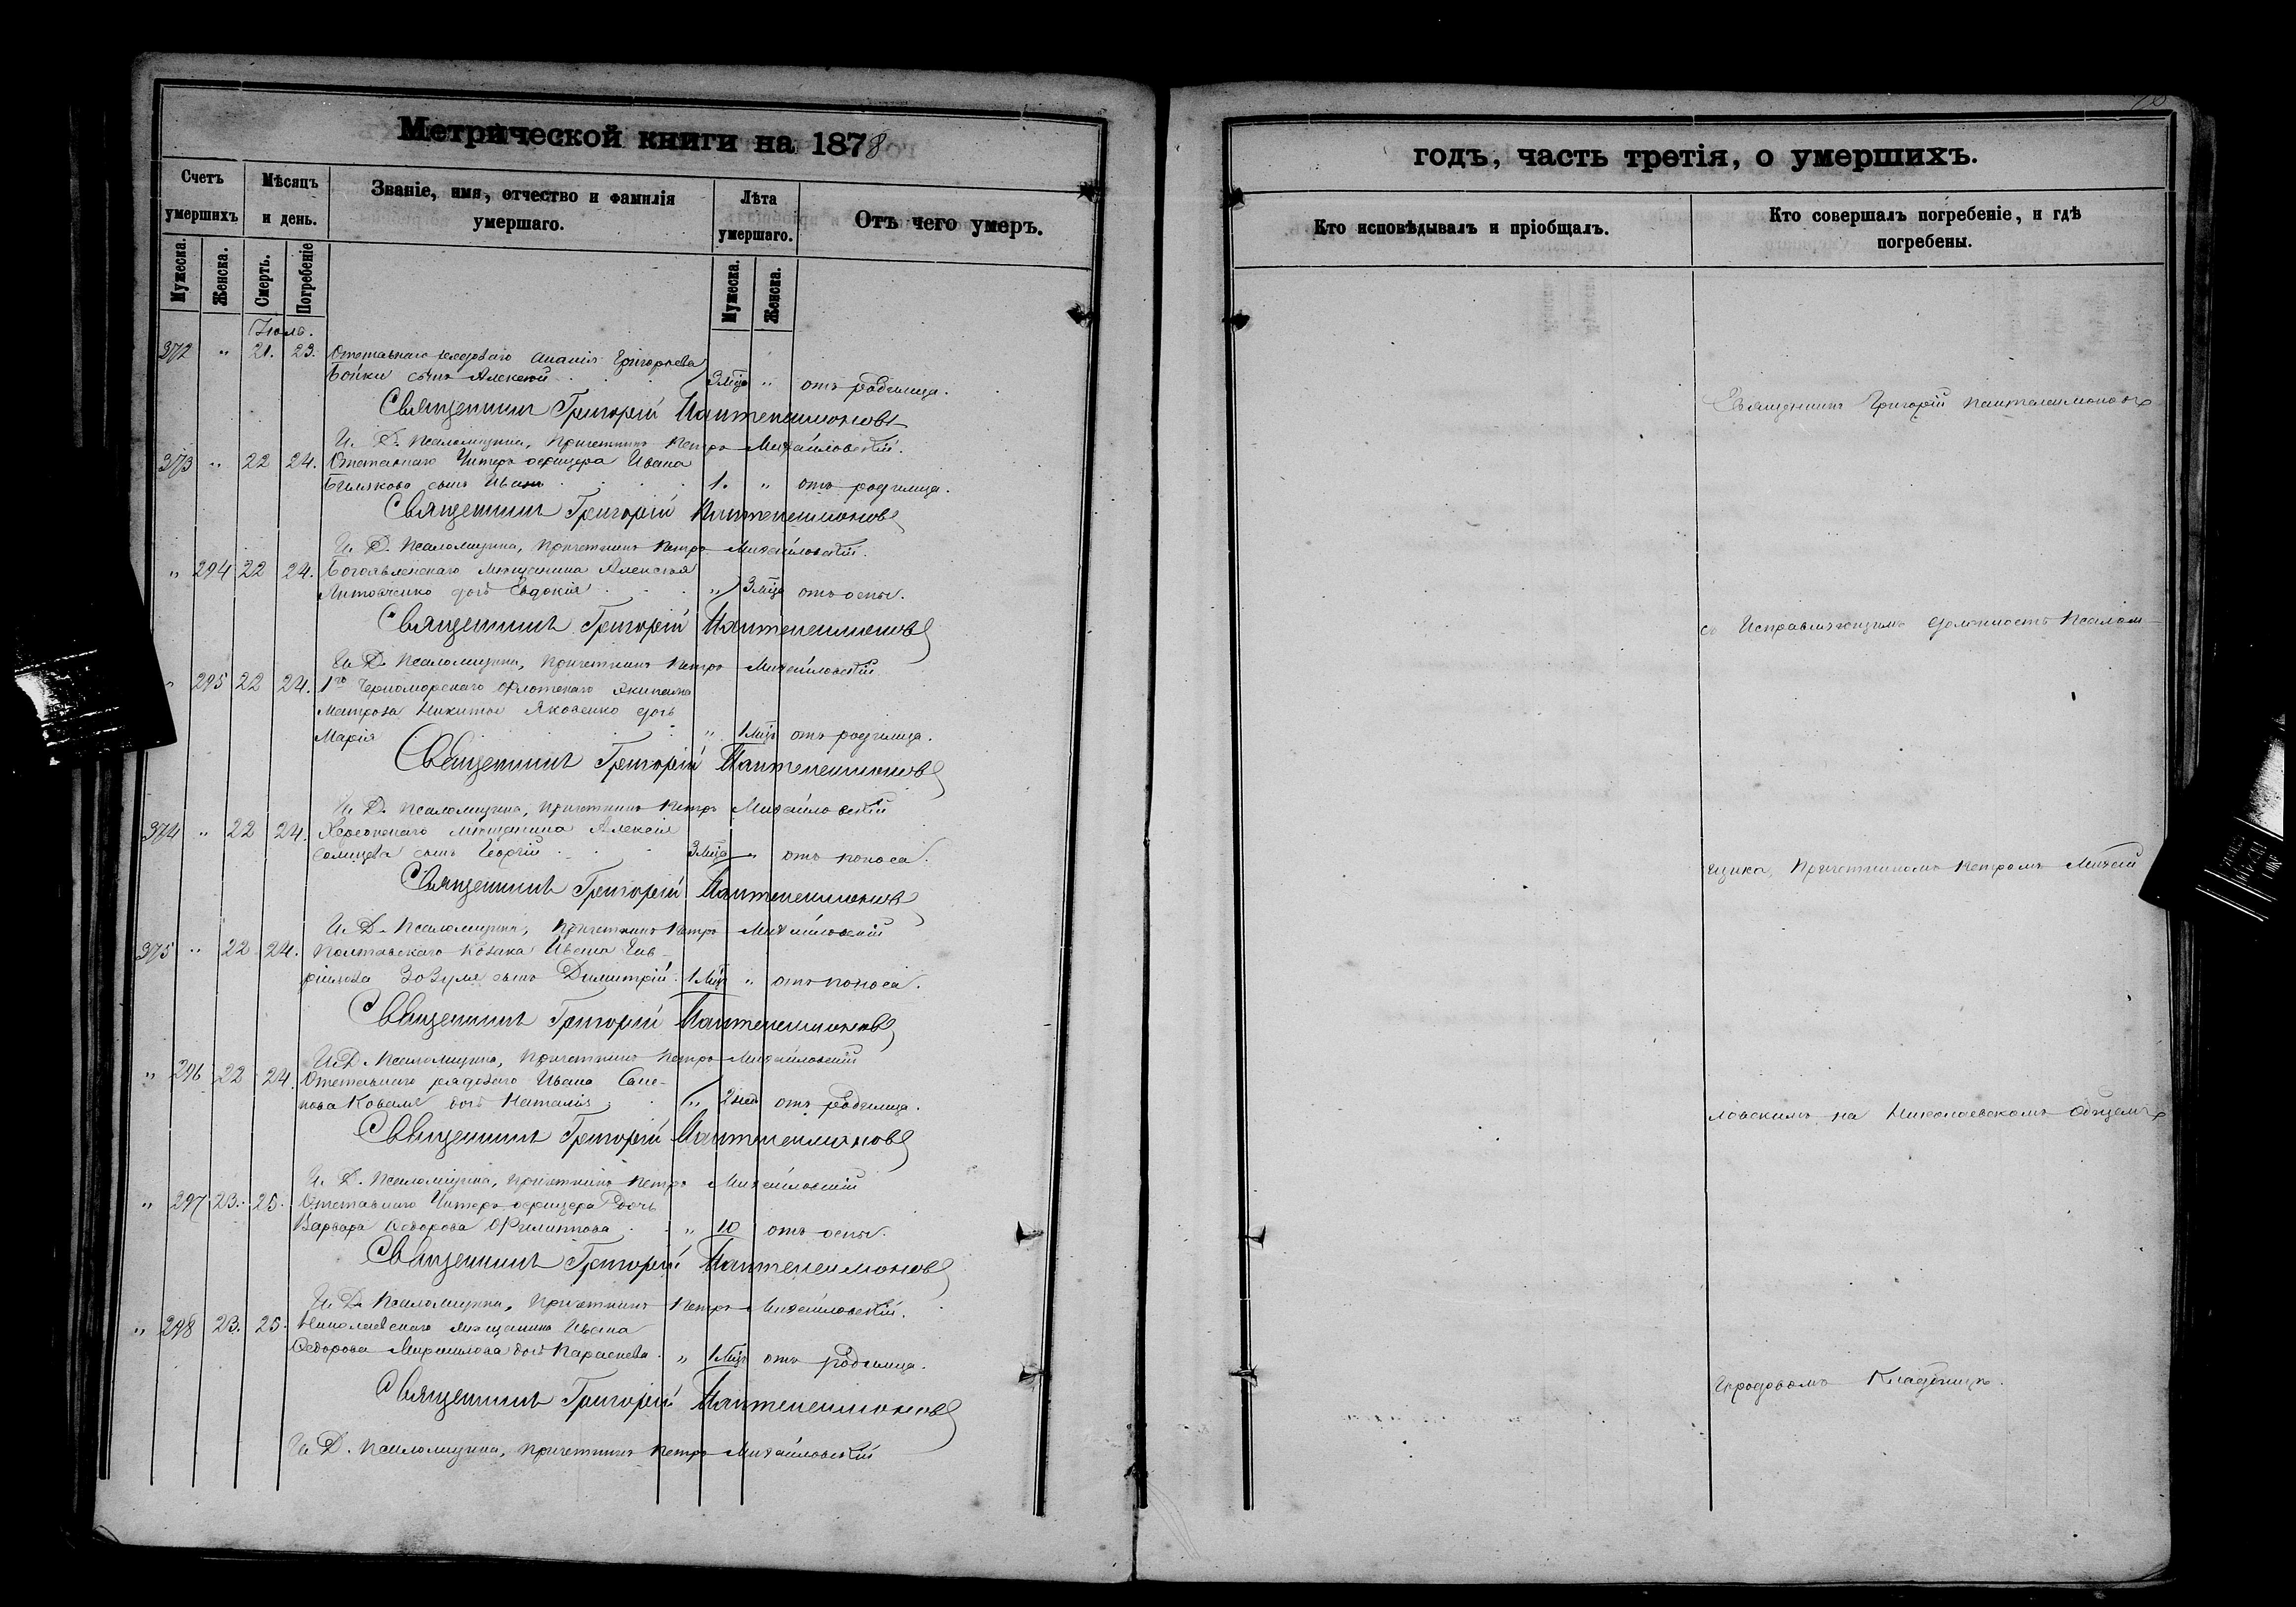 Метрической книги на 1878
годъ, часть третія, о умершихъ.
Счетъ умершихъ
Мѣсяцъ и день.
Званіе, имя, отчество и фамилія умершаго.
Лѣта умершаго.
Отъ чего умеръ.
Кто исповѣдывалъ и пріобщалъ.
Кто совершалъ погребеніе, и гдѣ погребены.
Мужеска.
Женска.
Смерть.
Погребеніе
Мужеска.
Женска.
Іюль.
372 " 21. 23. Отставнаго рядоваго Ананія Григорьева
Бойки сынъ Алексѣй 3 Мца " отъ родимца.
Священникъ Григорій Пантелеимоновъ
И. Д. Псаломщика, Причетникъ Петръ Михайловскій.
373 " 22 24. Отставнаго Унтеръ офицера Ивана
сынъ Иванъ 1. " отъ родимца.
Священникъ Григорій Пантелеимоновъ
И. Д. Псаломщика, Причетникъ Петръ Михайловскій.
" 294 22 24. Богоявленскаго мѣщанина Алексѣя
Литовченко дочь Евдокія " 3 Мца отъ оспы.
Священникъ Григорій Пантелеимоновъ
И. Д. Псаломщика, Причетникъ Петръ Михайловскій
" 295 22 24. 1го Черноморскаго Флотскаго Экипажа
Матроса Никиты Яковенко дочь
Марія " 1 Мцъ отъ родимца.
Священникъ Григорій Пантелеимоновъ
И. Д. Псаломщика, Причетникъ Петръ Михайловскій
374 " 22 24. Херсонскаго мѣщанина Алексія
сынъ Георгій 3 Мца " отъ поноса.
Священникъ Григорій Пантелеимоновъ
И. Д. Псаломщика, Причетникъ Петръ Михайловскій
375 " 22 24. Полтавскаго Козака Ивана Гав-
рілова Зозуля сынъ Димитрій 1 Мцъ " отъ поноса.
Священникъ Григорій Пантелеимоновъ
И. Д. Псаломщика, Причетникъ Петръ Михайловскій
" 296 22 24. Отставнаго рядоваго Ивана
Коваля дочь Наталія " 2 нед отъ родимца.
Священникъ Григорій Пантелеимоновъ
И. Д. Псаломщика, Причетникъ Петръ Михайловскій
" 297 23. 25. Отставнаго Унтеръ офицера дочь
Варвара Ѳедорова Филиппова " 10 отъ оспы.
Священникъ Григорій Пантелеимоновъ
И. Д. Псаломщика, Причетникъ Петръ Михайловскій.
" 298 23. 25. Николаевскаго мѣщанина Ивана
Ѳедорова дочь Параскева " 1 Мцъ отъ родимца.
Священникъ Григорій Пантелеимоновъ
И. Д. Псаломщика, Причетникъ Петръ Михайловскій
Священникъ Григорій Пантелеимоновъ
съ Исправляющимъ Должность Псалом-
щика, Причетникомъ Петромъ Михай
ловскимъ, на Николаевскомъ Общемъ
Городовомъ Кладбищѣ.